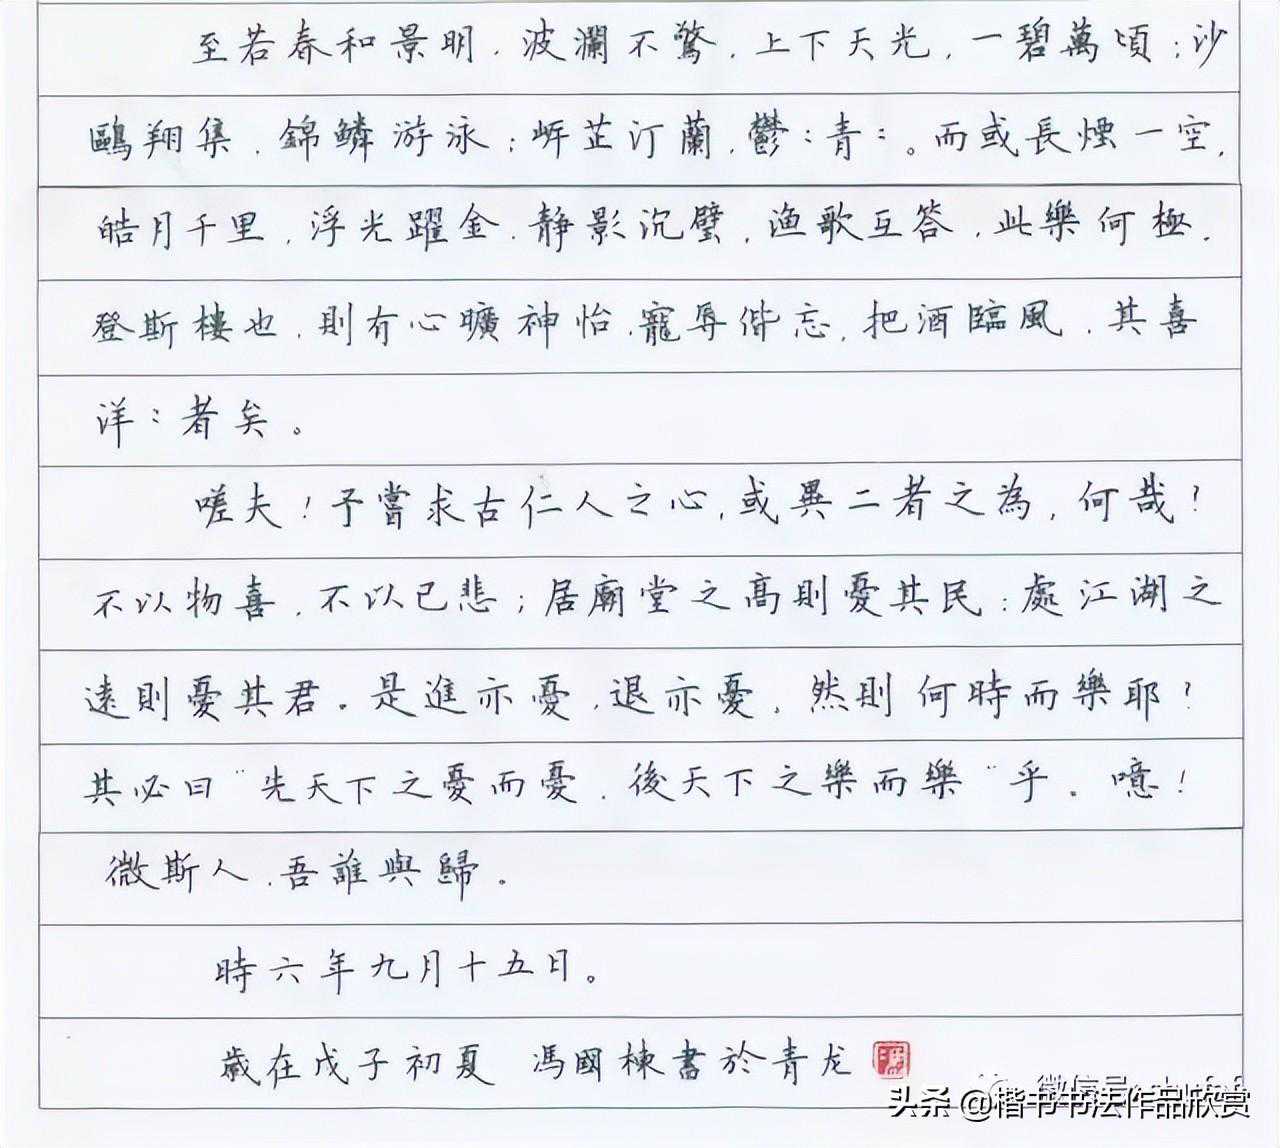 至若春和景明,波瀾不驚,上下天光,一碧萬頃;沙
鷗翔集,錦鱗游泳;岸芷汀蘭,鬱:青:。而或長煙一空,
皓月千里,浮光躍金,静影沉璧,渔歌互答,此樂何極,
登斯樓也,則有心曠神怡,寵辱偕忘,把酒臨風,其喜
洋:者矣。
嗟夫!予嘗求古仁人之心,或異二者之為,何哉?
不以物喜,不以己悲;居廟堂之高則憂其民;處江湖之
遠則憂其君。是進亦憂,退亦憂,然則何時而樂耶?
其必曰“先天下之憂而憂,後天下之樂而樂”乎。噫!
微斯人,吾誰與歸.
時六年九月十五日。
歲在戊子初夏 馮國棟書於青龙
头条 @楷书书法作品欣赏